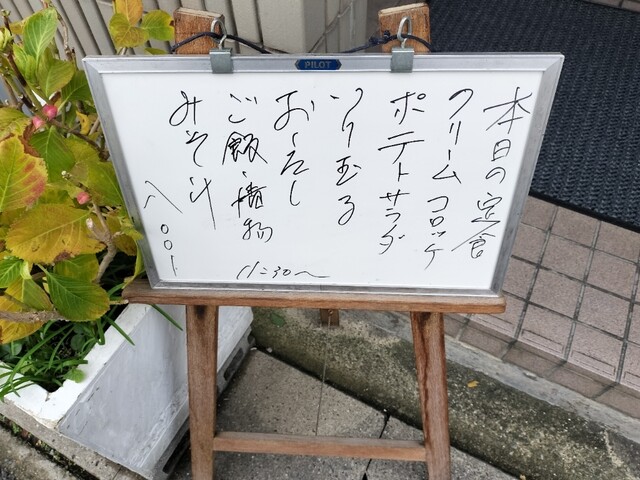 PILOT
本日の定食
クリームコロッケ
ポテトサラダ
いり玉子
おろし
ご飯・漬物
みそ汁
11:30〜